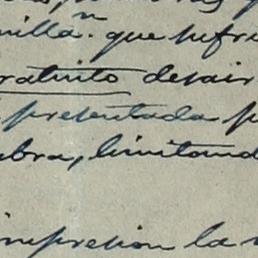 que sufri
gratuito desair
presentada p
bra, limitand
impresion la